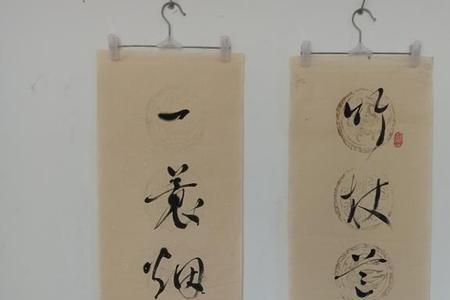 竹杖芒
一蓑烟